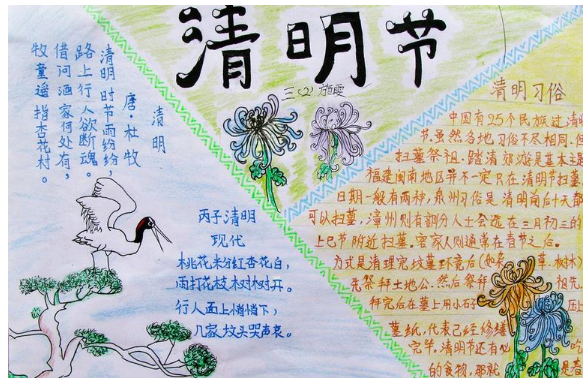 清明节
三(2)
清明
唐·杜牧
清明时节雨纷纷，
路上行人欲断魂。
借问酒家何处有，
牧童遥指杏花村。
丙子清明
现代
桃花米粉红杏花白，
雨打花枝树树开。
行人面上悄悄下，
几家坟头哭声哀。
清明习俗
中国有25个民族过清明
节，虽然各地习俗不尽相同，但
扫墓祭祖、踏清郊游是基本主
福建闽南地区并不一定只在清明节扫墓
日期一般有两种，泉州习俗是清明前后十天都
可以扫墓，漳州则有部分人士会选在三月初三的
上巳节附近扫墓。客家人则通常在春节之后。
方式是清理完坟墓环境后(如 草、树木)
先祭拜土地公，然后祭拜 祖先
拜完后在墓上用小石 压上
墓纸，代表已经修缮
完毕，清明节还有 吃
的食物，那就 是春